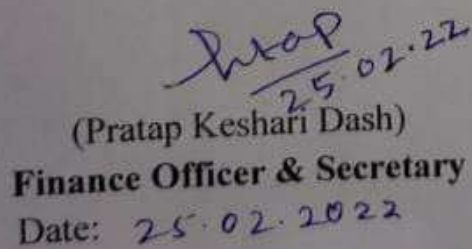 Pratap
25.02.22
(Pratap Keshari Dash)
Finance Officer & Secretary
Date: 25.02.2022